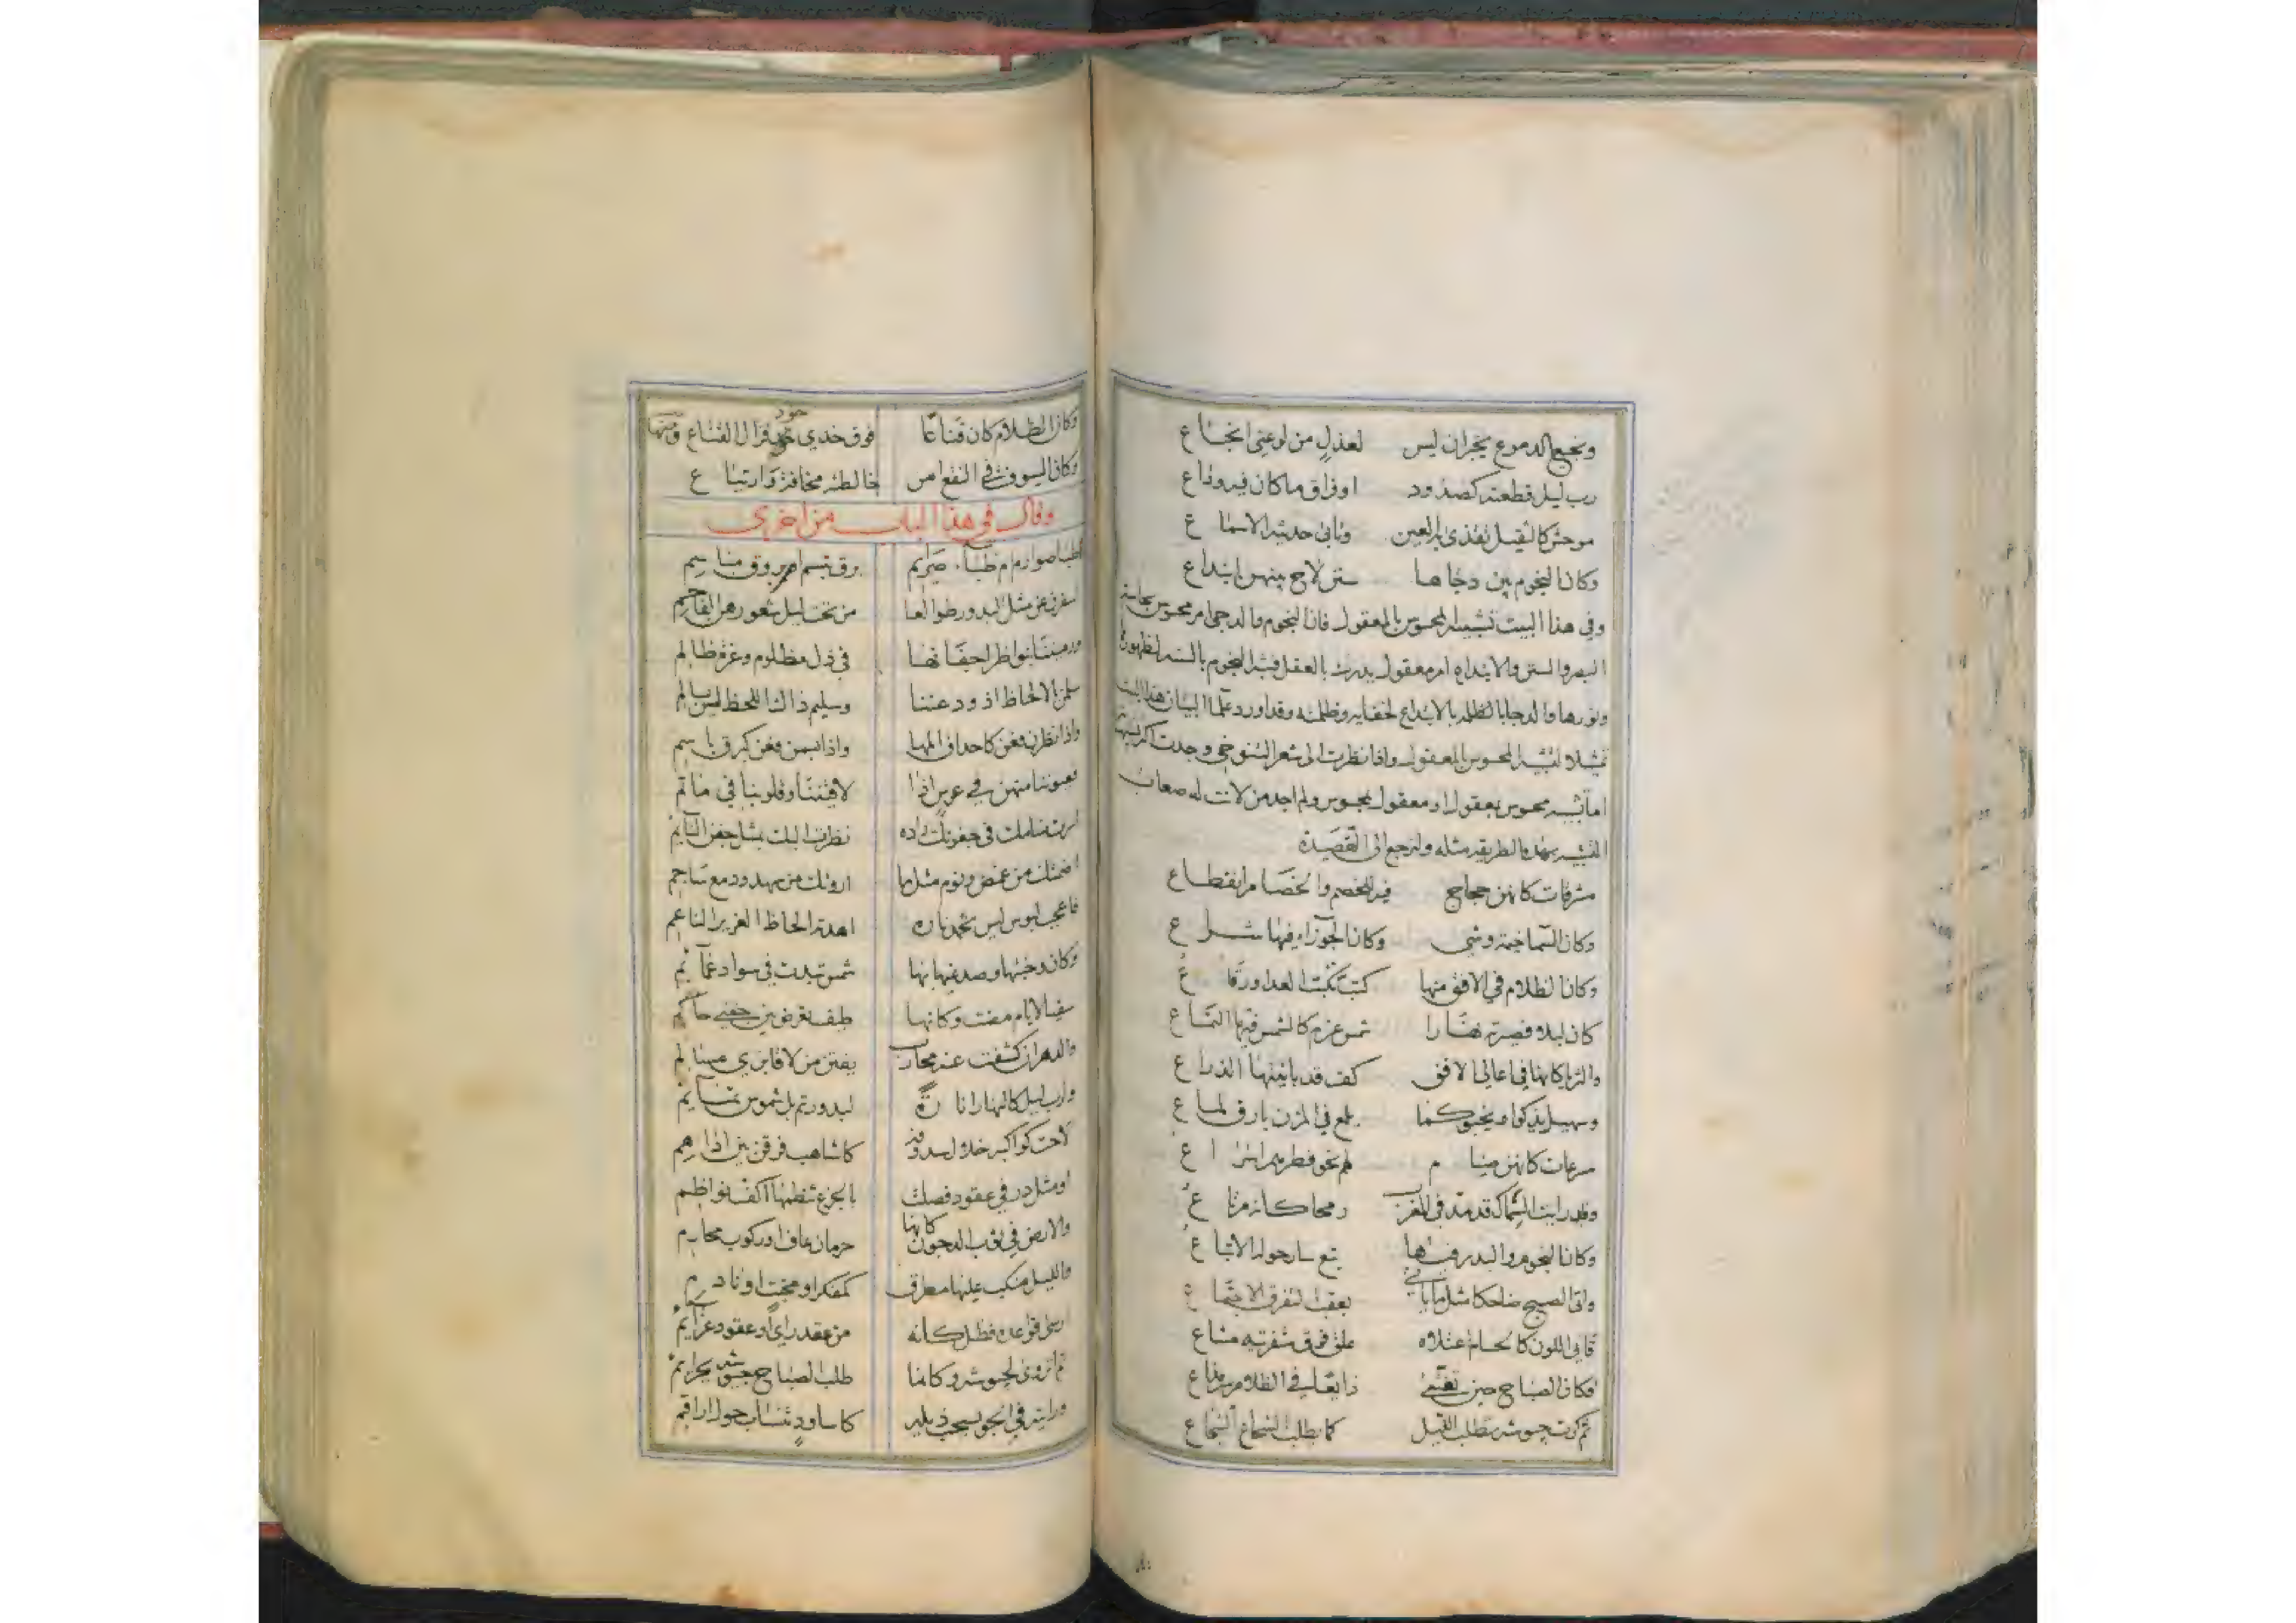 ونجيع الدموع يجران ليس لعذل من لوعتي انجاع
رب ليل قطعته كصدود او فراق ما كان فيه وداع
موحش كالثقيل تقذى به العين وتابى حديثه الاسماع
وكان النجوم بين دجاها سنن لاح بينهن ابتداع
وفي هذا البيت تشبيه المحسوس بالمعقول فان النجوم والدجى امر محسوس بحاسة
البصر والسنن والابتداع امر معقول يدرك بالعقل فشبه النجوم بالسنة لظهورها
ونورها والدجا بالظلمة بالابتداع لخفايه وظلمته وقد اورد علما البيان هذا البيت
تمثيلا لتشبيه المحسوس بالمعقول واذا نظرت الى شعر التنوخي وجدت اكثر تشبيهاته
اما تشبيه محسوس بمعقول او معقول بمحسوس ولم اجد من لانت له صعاب
التشبيه بهذه الطريقة مثله ولنرجع الى القصيدة
مشرقات كانهن حجاج فيه للخصم والخصام انقطاع
وكان السما خيمة وشي وكان الجوزاء فيها شراع
وكان الظلام في الافق منها كتب كتبت العدا ورقاع
كان ليلا فصيرته نهارا شمس عزم كالشمس فيها التماع
والثريا كانها في اعالي الافق كف قد باينتها الذراع
وسهيل يذكو او يخبو كما يلمع في المزن بارق لماع
مسرعات كانهن صيام لم نحو فطرهم اسراع
وقد رايت السماك قد مد في الغرب رمحا كانه مرتاع
وكان النجوم والبدر فيها تبع سار حوله الاتباع
واتى الصبح ضاحكا مثل ما ياتي بعقب التفرق الاجتماع
قاني اللون كالحسام علاه علق فوق شفرتيه مشاع
فكان الصباح حين تقضى ذا يعاب في الظلام مذاع
ثم كرت جيوشه تطلب الليل كما يطلب الشجاع الشجاع
وكان الظلام كان قناعا فوق خدي خود فزال القناع ومنها
وكان السيوف في النقع امن خالطته مخافة وارتياع
وقال في هذا الباب من اخرى
اظبا صوارم ام ظباء صرايم برق تبسم ام بروق مباسم
سفرن عن مثل البدور طوالعا من تحت ليل شعورهن الفاحم
ورميننا بنواظر اجفانها في ذل مظلوم وعز ظالم
سلمن بالالحاظ اذ ودعننا وسليم ذاك اللحظ ليس بسالم
واذا نظرن فعن كاحداق المها واذا بسمن فعن كبرق باسم
فعيوننا منهن في عرس اذا لاقيننا وقلوبنا في ماتم
نظرت اليك بمثل جفن النايم
اضمتك من غمض ونوم مثل ما اروتك من سهد ودمع ساجم
فاعجب لبوس ليس تخمد ناره اهدته الحاظ الغرير الناعم
وكان وجنتها وصدغيها بها شمس تبدت في سواد غمايم
سقيا لايام مضت وكانها طيف تعرض بين جفني حالم
والدهر ان كشفت عنه محارب يفتر من لاقاه بزي مسالم
ولرب ليل كالنهار اناره لبدور تم بل شموس تمايم
لاحت كواكبه خلال سدوفه كاشاهب فرقن بين اداهم
او مثل در في عقود فصلت بالجزع تنظمها اكف نواظم
والارض في ثوب الدجون كانها حرمان عاف او ركوب محارم
والليل منكب عليها مطرق كمفكر او مخبت او نادم
ارسى قواعده فظل كانه من عقد راي او عقود عزايم
طلب الصباح جيوشه بجرايم
ورايته في الجو يسحب ذيله كاساود تنساب حول اراقم